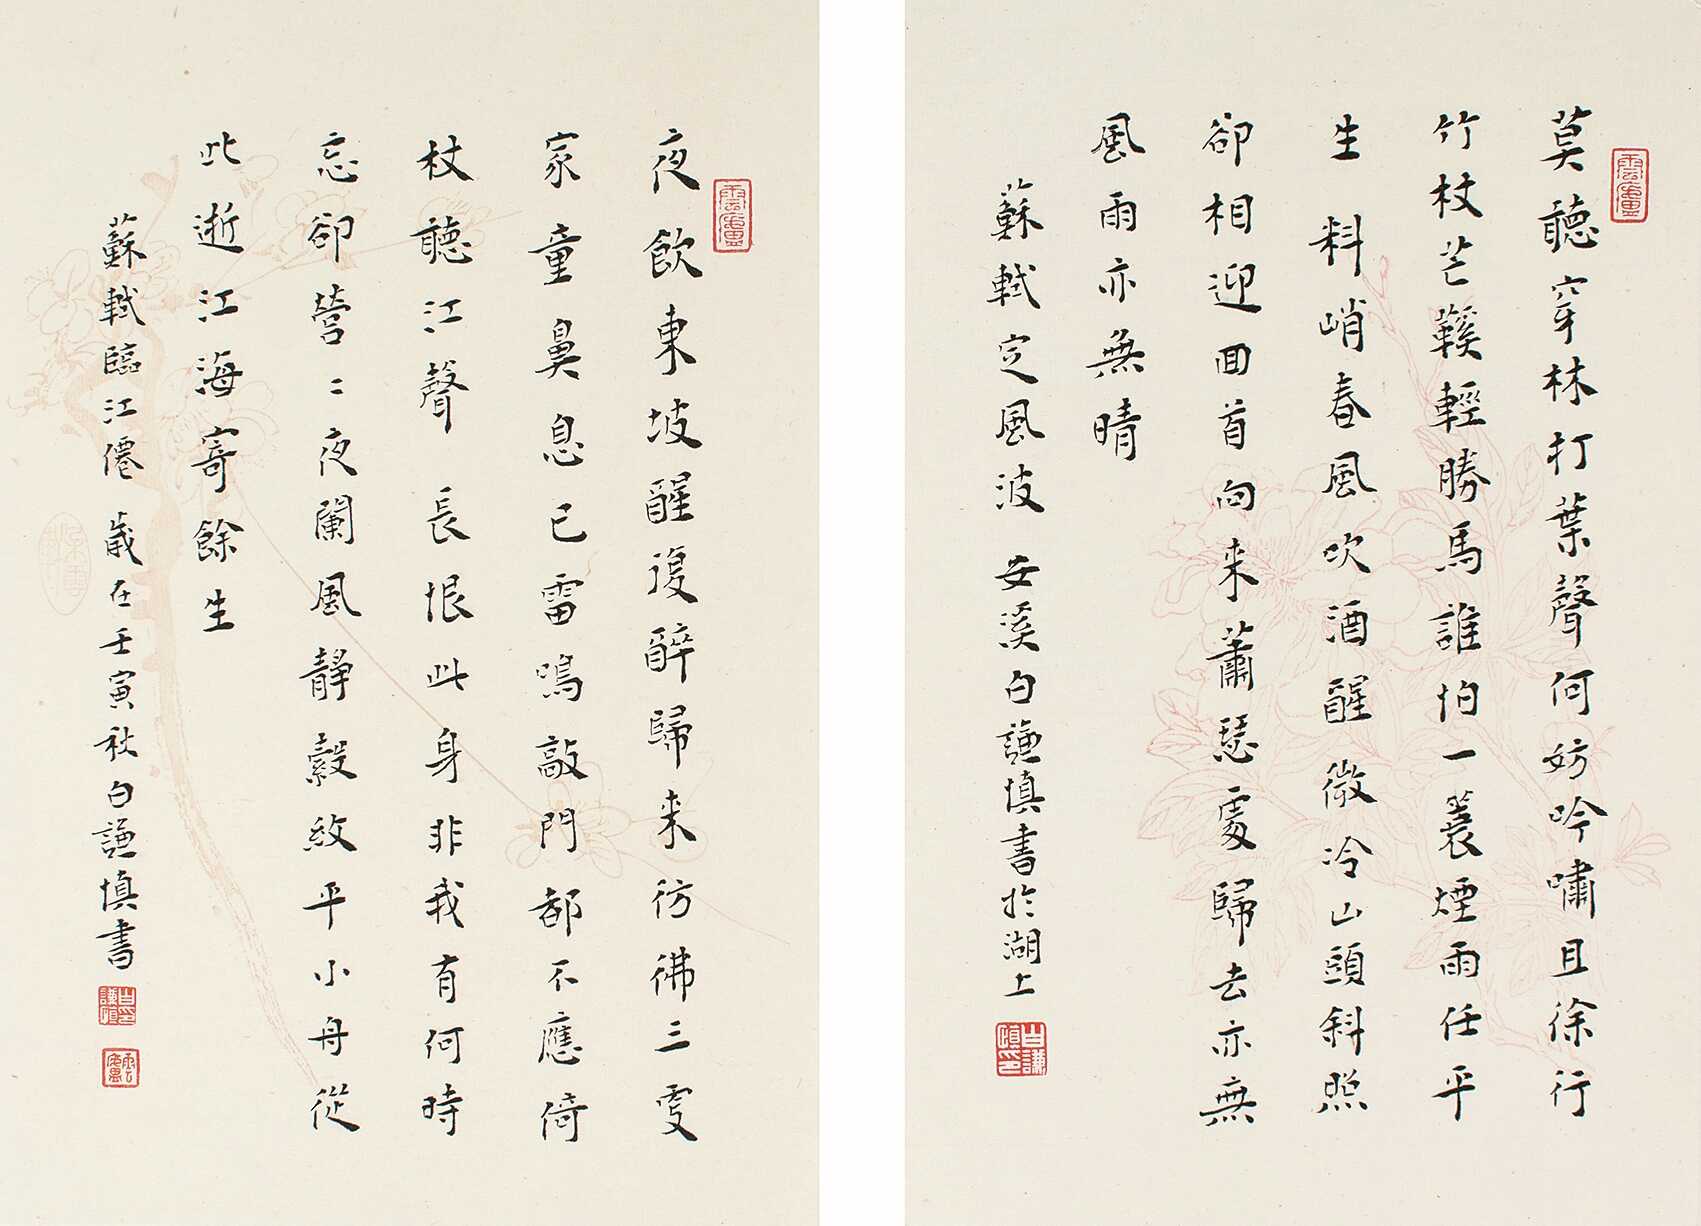 雲廬
莫聽穿林打葉聲何妨吟嘯且徐行
竹杖芒鞵輕勝馬誰怕一蓑煙雨任平
生 料峭春風吹酒醒微冷山頭斜照
卻相迎囬首向来蕭瑟處歸去亦無
風雨亦無晴
蘇軾定風波 安溪白謙慎書於湖上
白謙慎印
雲廬
夜飲東坡醒復醉歸来彷彿三更
家童鼻息已雷鳴敲門都不應倚
杖聽江聲 長恨此身非我有何時
忘卻營〻夜闌風靜縠紋平小舟從
此逝江海寄餘生
蘇軾臨江僊 歲在壬寅秋白謙慎書
白謙慎印
雲廬